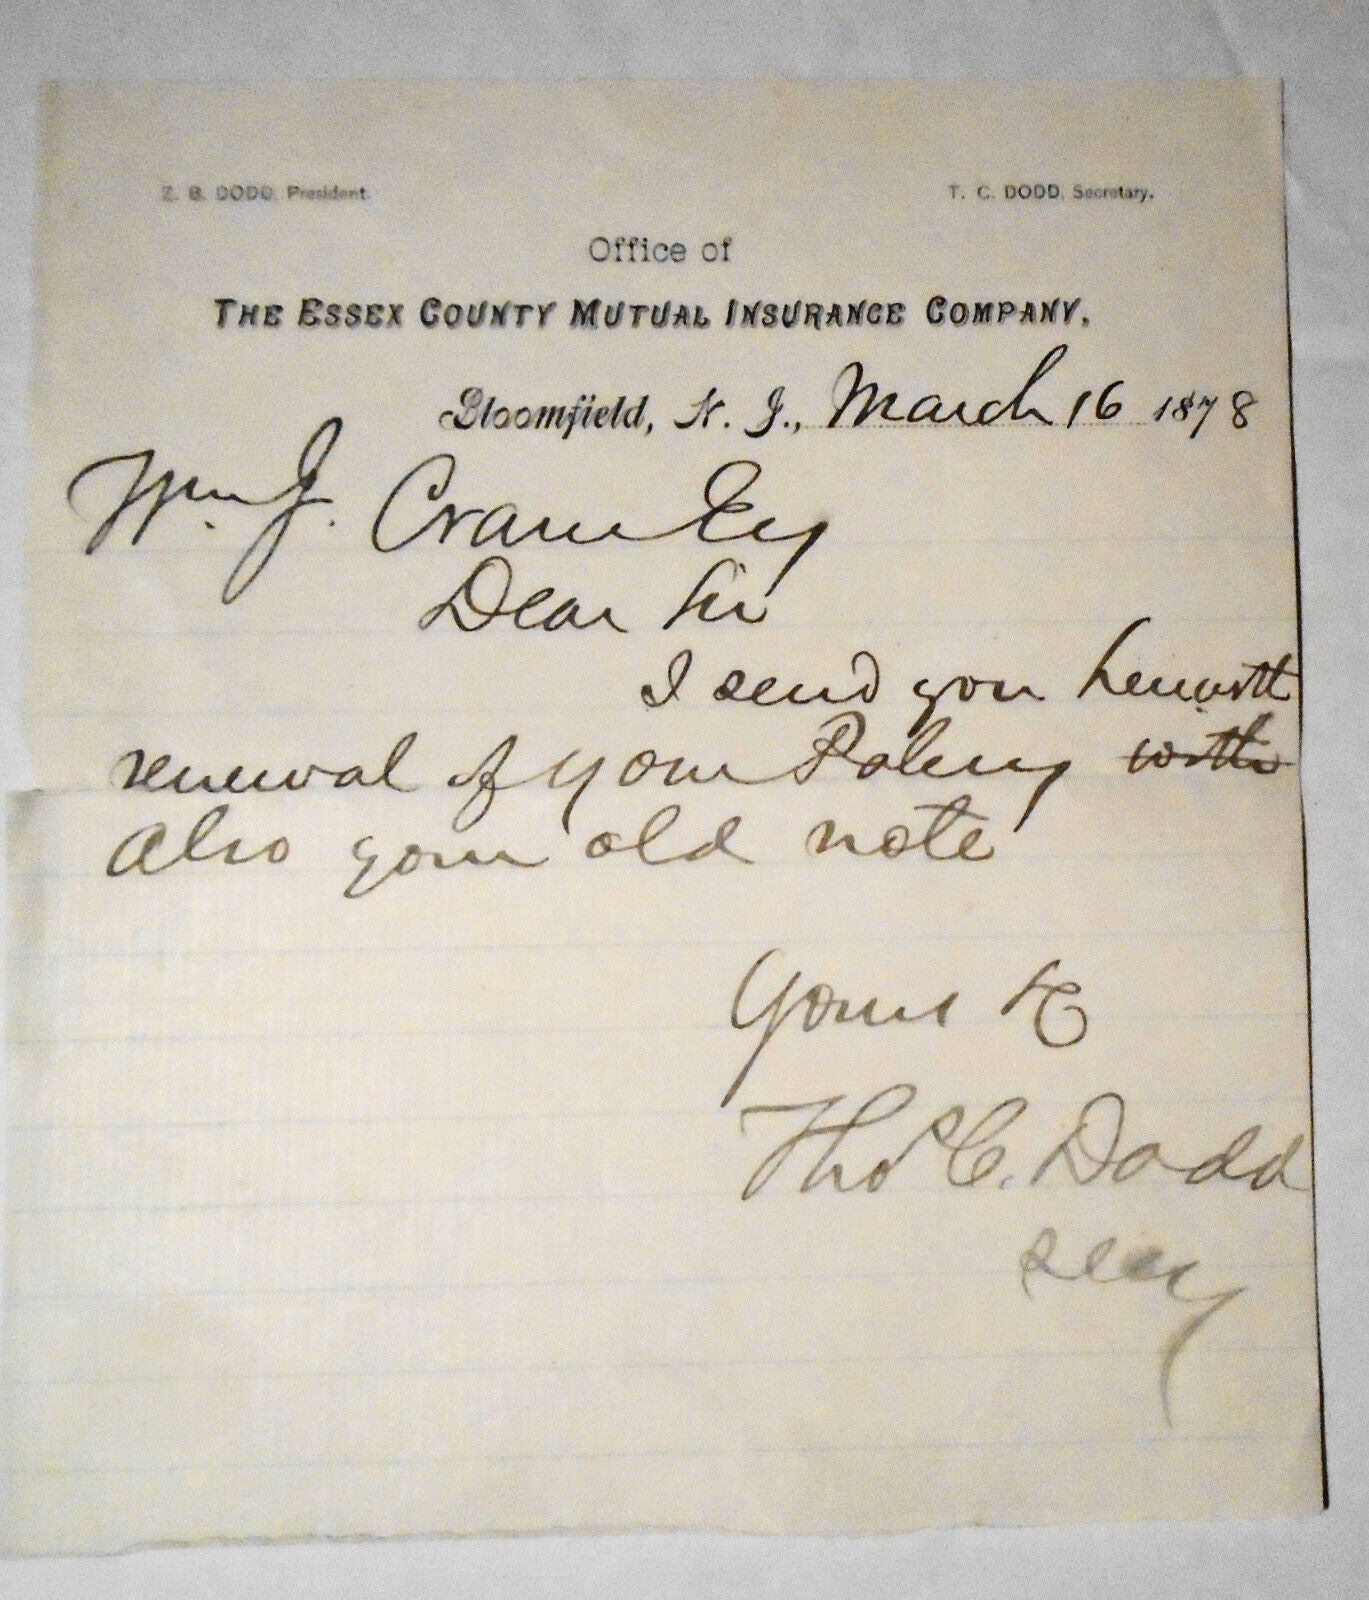 Z. B. DODD, President.
T. C. DODD, Secretary.
Office of
THE ESSEX COUNTY MUTUAL INSURANCE COMPANY,
Bloomfield, N. J., March 16 1878
Wm. J. Crawley
Dear Sir
I send you herewith
renewal of your Policy with
Also your old note
Yours &c
Thos C. Dodd
Secy